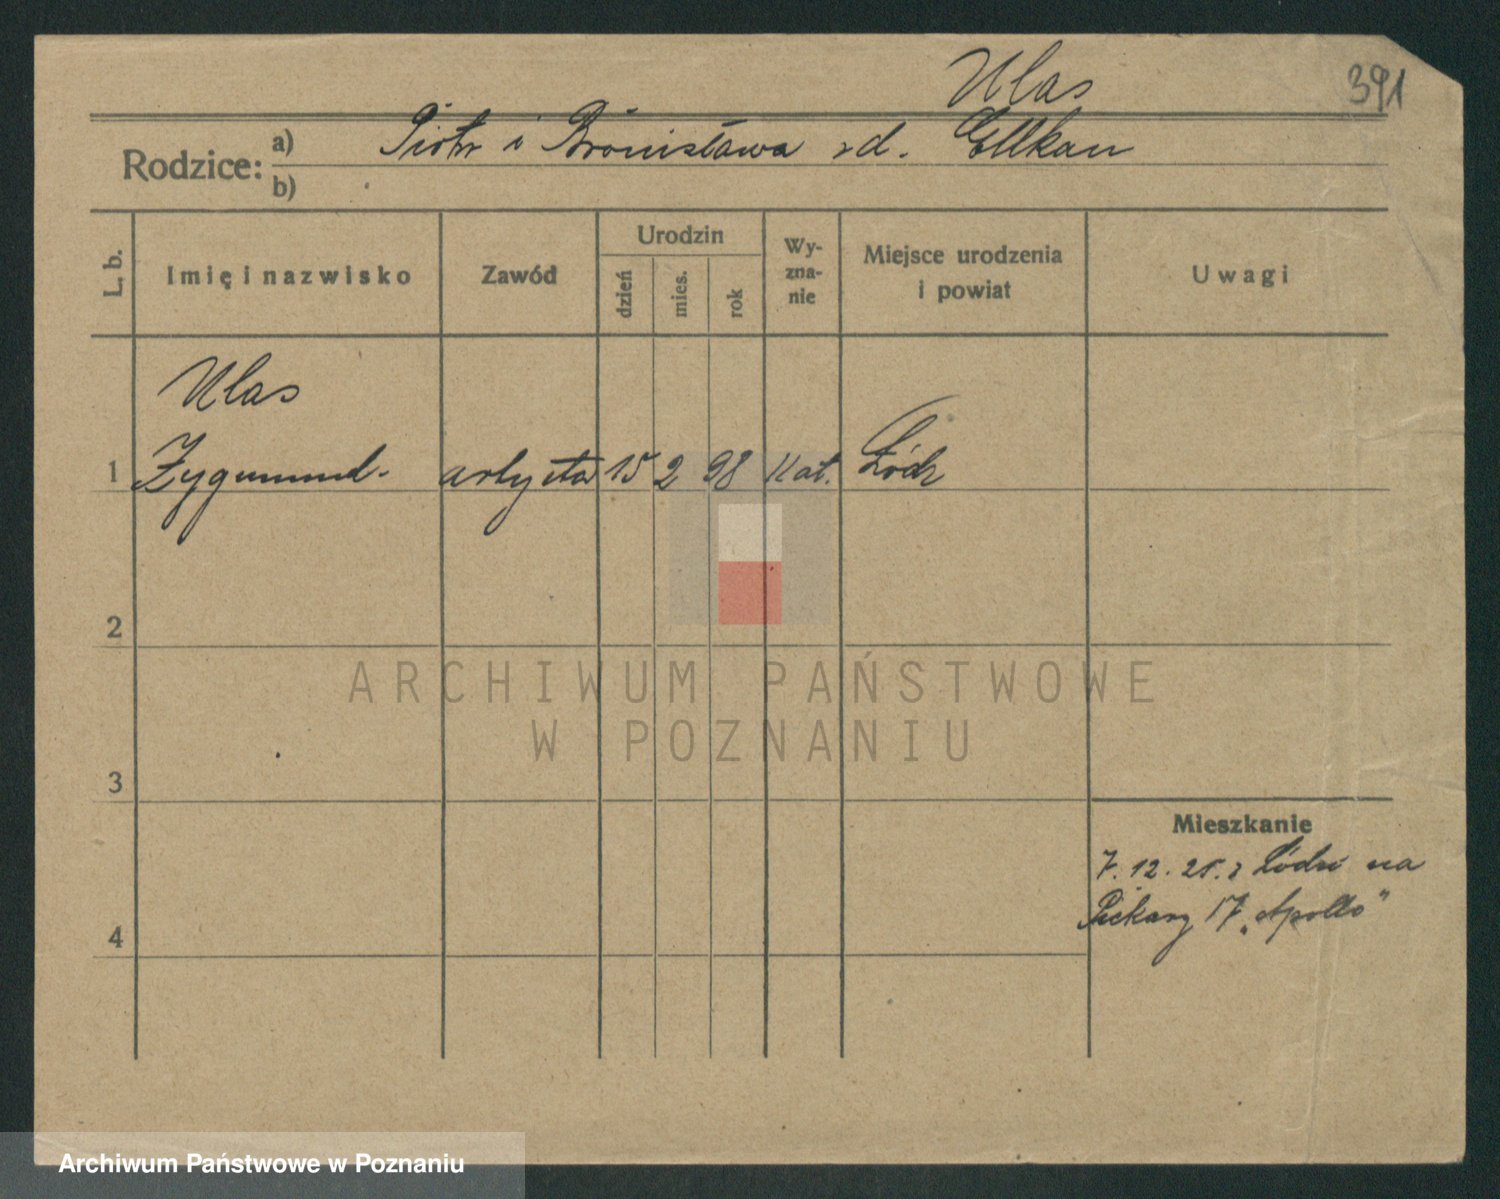 Ulas
391
Rodzice:
a) Piotr i Bronisława zd. Ellkan
b)
L. b.
Imię i nazwisko
Zawód
Urodzin
dzień
mies.
rok
Wy-
zna-
nie
Miejsce urodzenia
i powiat
Uwagi
Ulas
1 Zygmund. artysta 15 2 98 Kat. Łódź
2
ARCHIWUM PAŃSTWOWE
W POZNANIU
3
Mieszkanie
7. 12. 25. z Łodzi na
Piekary 17 „Apollo”
4
Archiwum Państwowe w Poznaniu